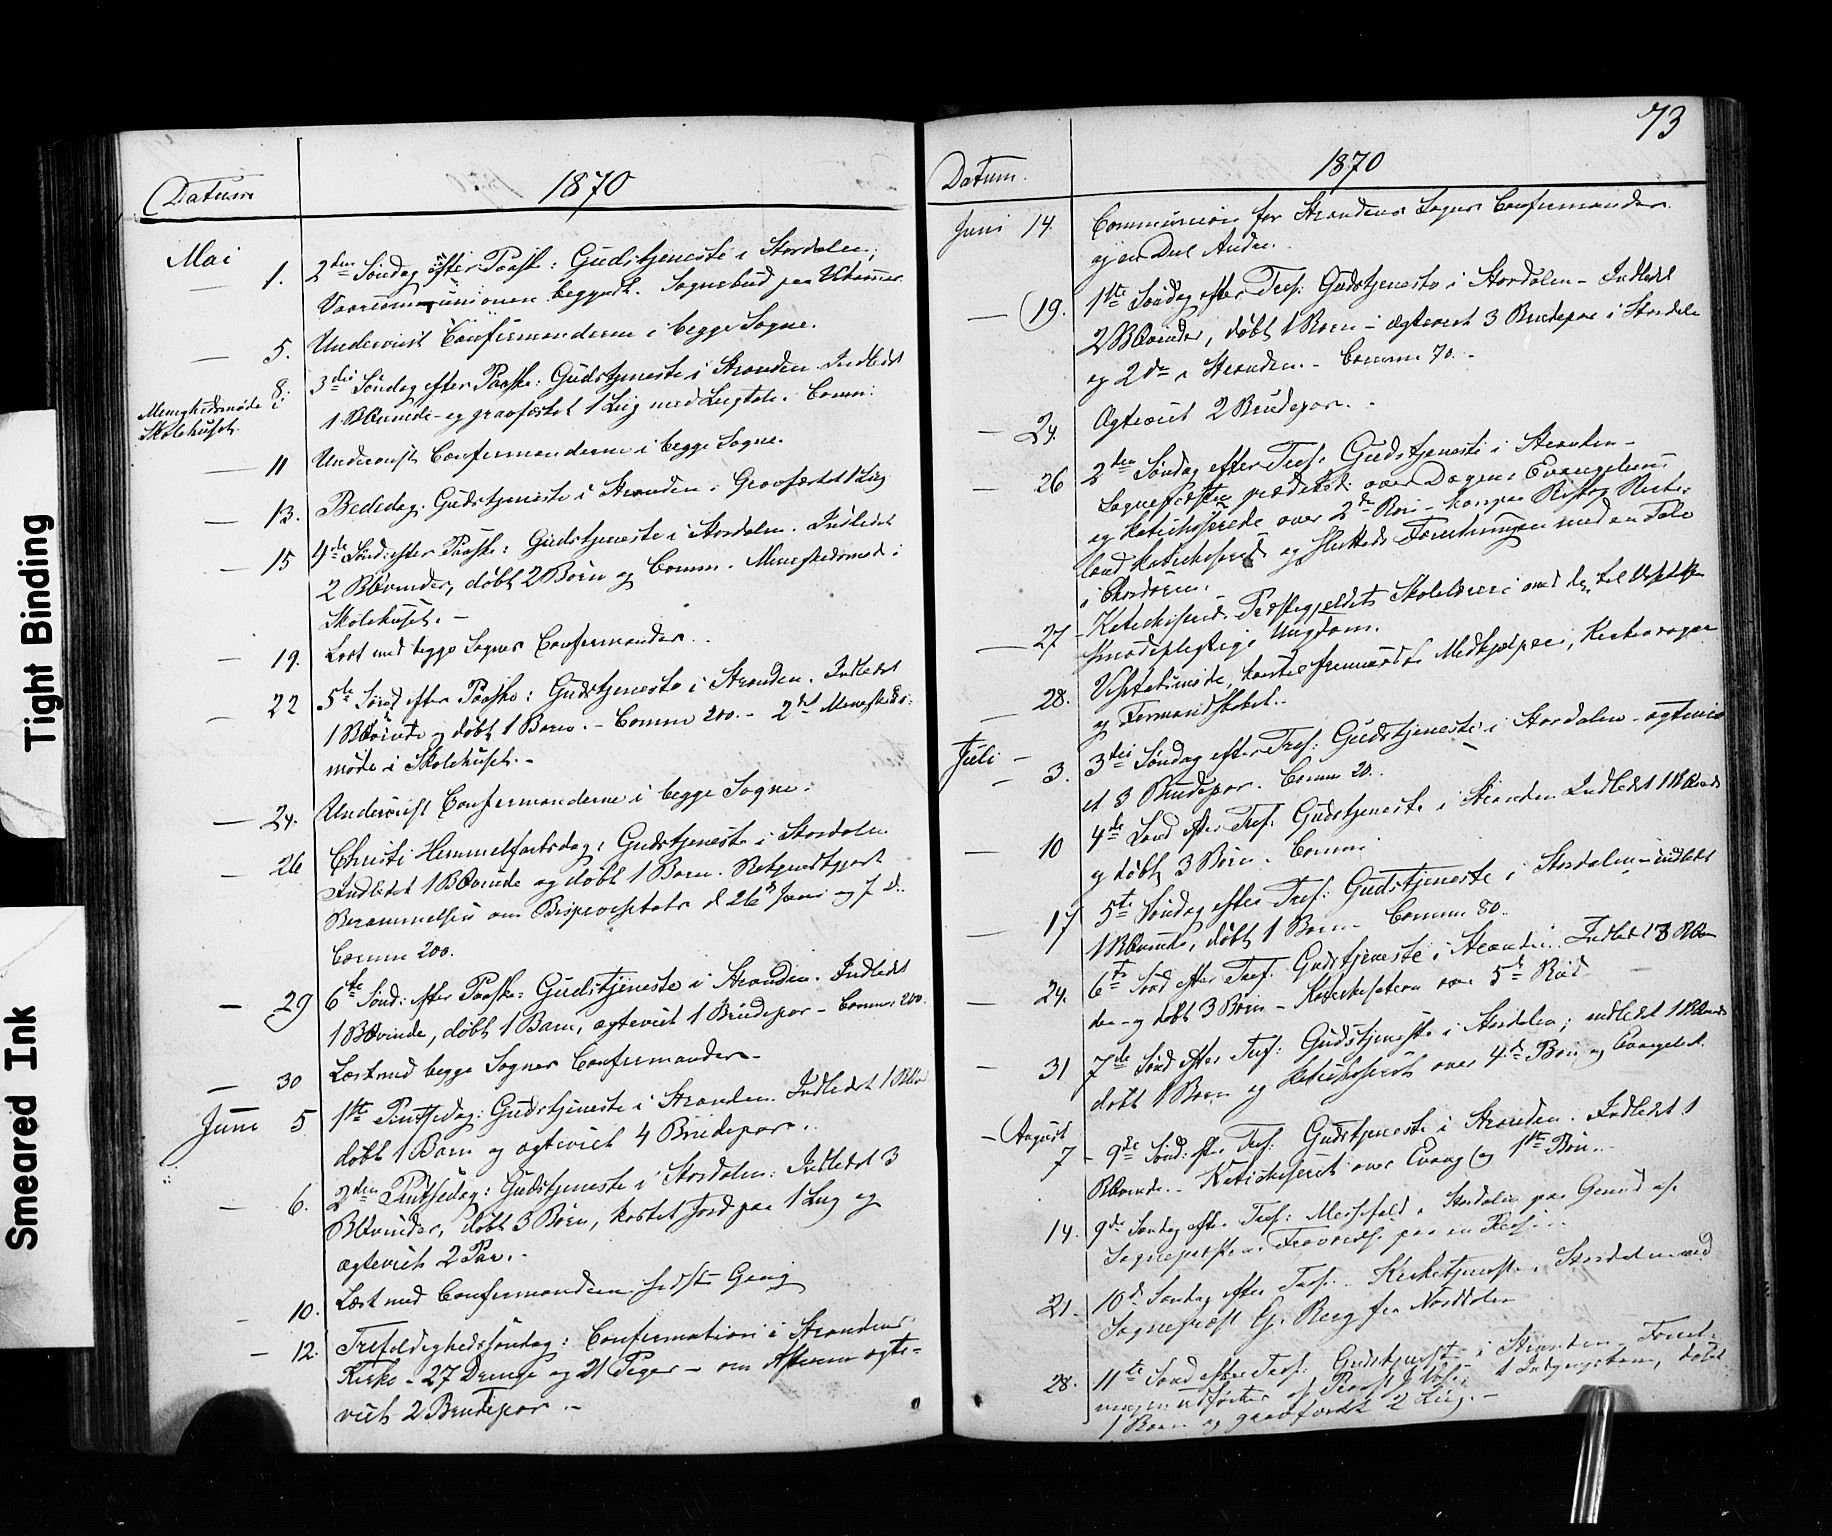 Tight Binding
Smeared Ink
Datum
1870
Mai
1. 2den Søndag efter Paaske: Gudstjeneste i Stordalen;
Vaarcommunionen begyndt. Sognebud paa
5. Underviist Confirmanderne i begge Sogne.
8. 3die Søndag efter Paaske: Gudstjeneste i Stranden. Indledet
Menighedsmøde i
Skolehuset.
1 BKvinde og gravfæstet 1 Liig med Liigtale. Comm:
11 Underviist Confirmanderne i begge Sogne.
13. Bededag. Gudstjeneste i Stranden. Gravfæstet 1 Liig
15 4de Sønd: efter Paaske: Gudstjeneste i Stordalen. Indledet
2 BKvinder, døbt 2 Børn og Comm. Menighedsmøde i
Skolehuset. -
19. Læst med begge Sognes Confirmander.
22 5te Sønd. efter Paaske: Gudstjeneste i Stranden. Indledet
1 BKvinde og døbt 1 Barn. - Comm 200. - 2det Menigheds-
møde i Skolehuset. -
24. Underviist Confirmanderne i begge Sogne.
26 Christi Himmelfartsdag: Gudstjeneste i Stordalen
Indledet 1 BKvinde og døbt 1 Barn.
Berammelsen om Bispevisitats d 26de Juni og f. D.
Comm 200.
29 6te Sønd: efter Paaske: Gudstjeneste i Stranden. Indledet
1 BKvinde, døbt 1 Barn, ægteviet 1 Brudepar - Comm: 200.
30 Læst med begge Sognes Confirmander -
Juni 5. 1ste Pintsedag: Gudstjeneste i Stranden. Indledet 1 BKv
døbt 1 Barn og ægteviet 4 Brudepar.
6. 2den Pintsedag: Gudstjeneste i Stordalen: Indledet 3
BKvinder, døbt 3 Børn, kastet Jord paa 1 Liig og
ægteviet 2 Par. -
10. Læst med Confirmanderne sidste Gang
12. Trefoldighedssøndag: Confirmation i Strandens
Kirke - 27 Drenge og 21 Piger - om Aftenen ægte-
viet 2 Brudepar -
73
Datum.
1870
Juni 14. Communion for Strandens Sogns Confirmander
og en Deel Andre.
19. 1ste Søndag efter Tref: Gudstjeneste i Stordalen - Indledet
2 BKvinder, døbt 1 Barn - ægteviet 3 Brudepar i Stordalen
og 2 do i Stranden. - Comm 70. -
24. Ægteviet 2 Brudepar. -
26 2den Søndag efter Tref: Gudstjeneste i Stranden -
Sognepræsten prædikede over Dagens Evangelium
og katechiserede over 2den Bøn -
katechiserede og sluttede Forretningen med en Tale
i Chordøren.
27 Katechiserede Præstegjeldets Skolelærere med den til Visitats
mødepligtige Ungdom.
28. Visitatsmøde, hvortil fremmødte Medhjælpere, Kirkeværger
og Formandskabet. -
Juli - 3. 3die Søndag efter Tref: Gudstjeneste i Stordalen - ægtevi-
et 3 Brudepar. Comm 20.
10 4de Sønd efter Tref: Gudstjeneste i Stranden Indledet 1 BKvinde
og døbt 3 Børn. Comm:
17 5te Søndag efter Tref: Gudstjeneste i Stordalen - indledet
1 BKvinde, døbt 1 Barn - Comm 80.
24. 6te Sønd efter Tref. Gudstjeneste i Stranden. Indledet 3 BKvin
der - og døbt 3 Børn - Katechisation over 5te Bud
31 7de Sønd efter Tref: Gudstjeneste i Stordalen; indledet 1 BKvinde
døbt 1 Barn og katechiseret over 4de Bøn og Evangeliet.
August
7 - 9de Sønd: efter Tref: Gudstjeneste i Stranden. Indledet 1
BKvinde. - Katechiseret over Evang og 1ste Bøn. -
14. 9de Søndag efter Tref: Messefald i Stordalen paa Grund af
Sognepræstens Fraværelse paa en Reise. -
21. 10de Søndag efter Tref: Kirketjeneste i Stordalen ved
Sognepræst Berg fra Norddalen
28. 11te Sønd efter Tref: Gudstjeneste i Stranden - Forret-
ningen udførtes af 1 Indgangskone, døbt
1 Barn og gravfæstet 2 Liig. -